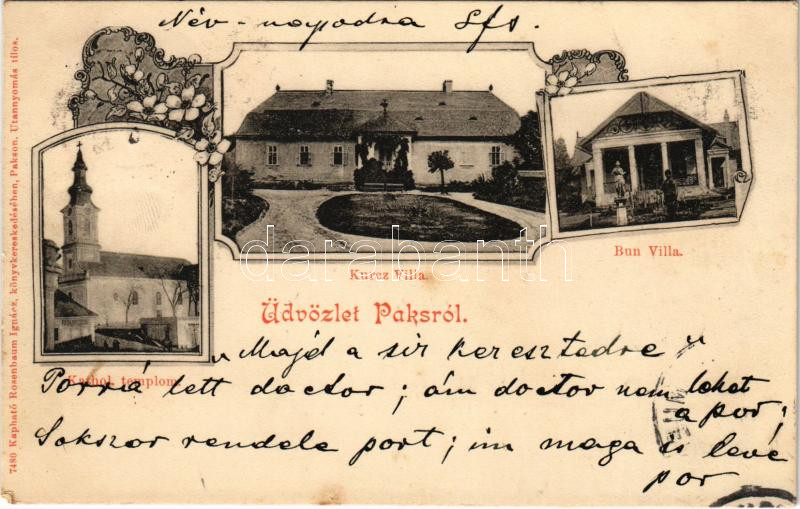 Név-napodra Lfs.
Kurcz Villa.
Bun Villa.
Kathol. templom.
Üdvözlet Paksról.
"Majd a sir keresztedre"
Porrá lett doctor; ám doctor nem lehet
a por;
Sokszor rendele port; im maga is levé
por
7480 Kapható Rosenbaum Ignácz, könyvkereskedésében, Pakson. Utannyomás tilos.
darabanth